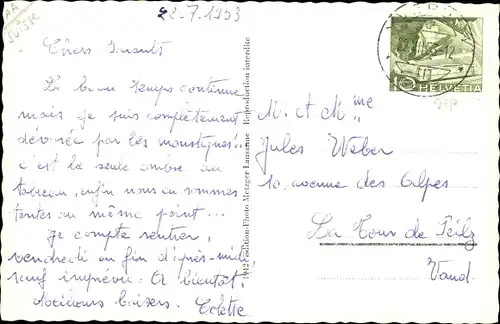 AA
Suisse
22.7.1953
Chers Parents
Le beau temps continue
mais je suis complètement
dévorée par les moustiques!
c'est la seule ombre au
tableau, enfin nous en sommes
toutes au même point...
Je compte rentrer
vendredi en fin d'après-midi
sauf imprévu. A bientôt,
docteurs baisers. Colette
1942 édition-Photo Metzger Lausanne Reproduction interdite
M. & Mme
Jules Weber
10. avenue des Alpes
La Tour de Peilz
Vaud.
10
HELVETIA